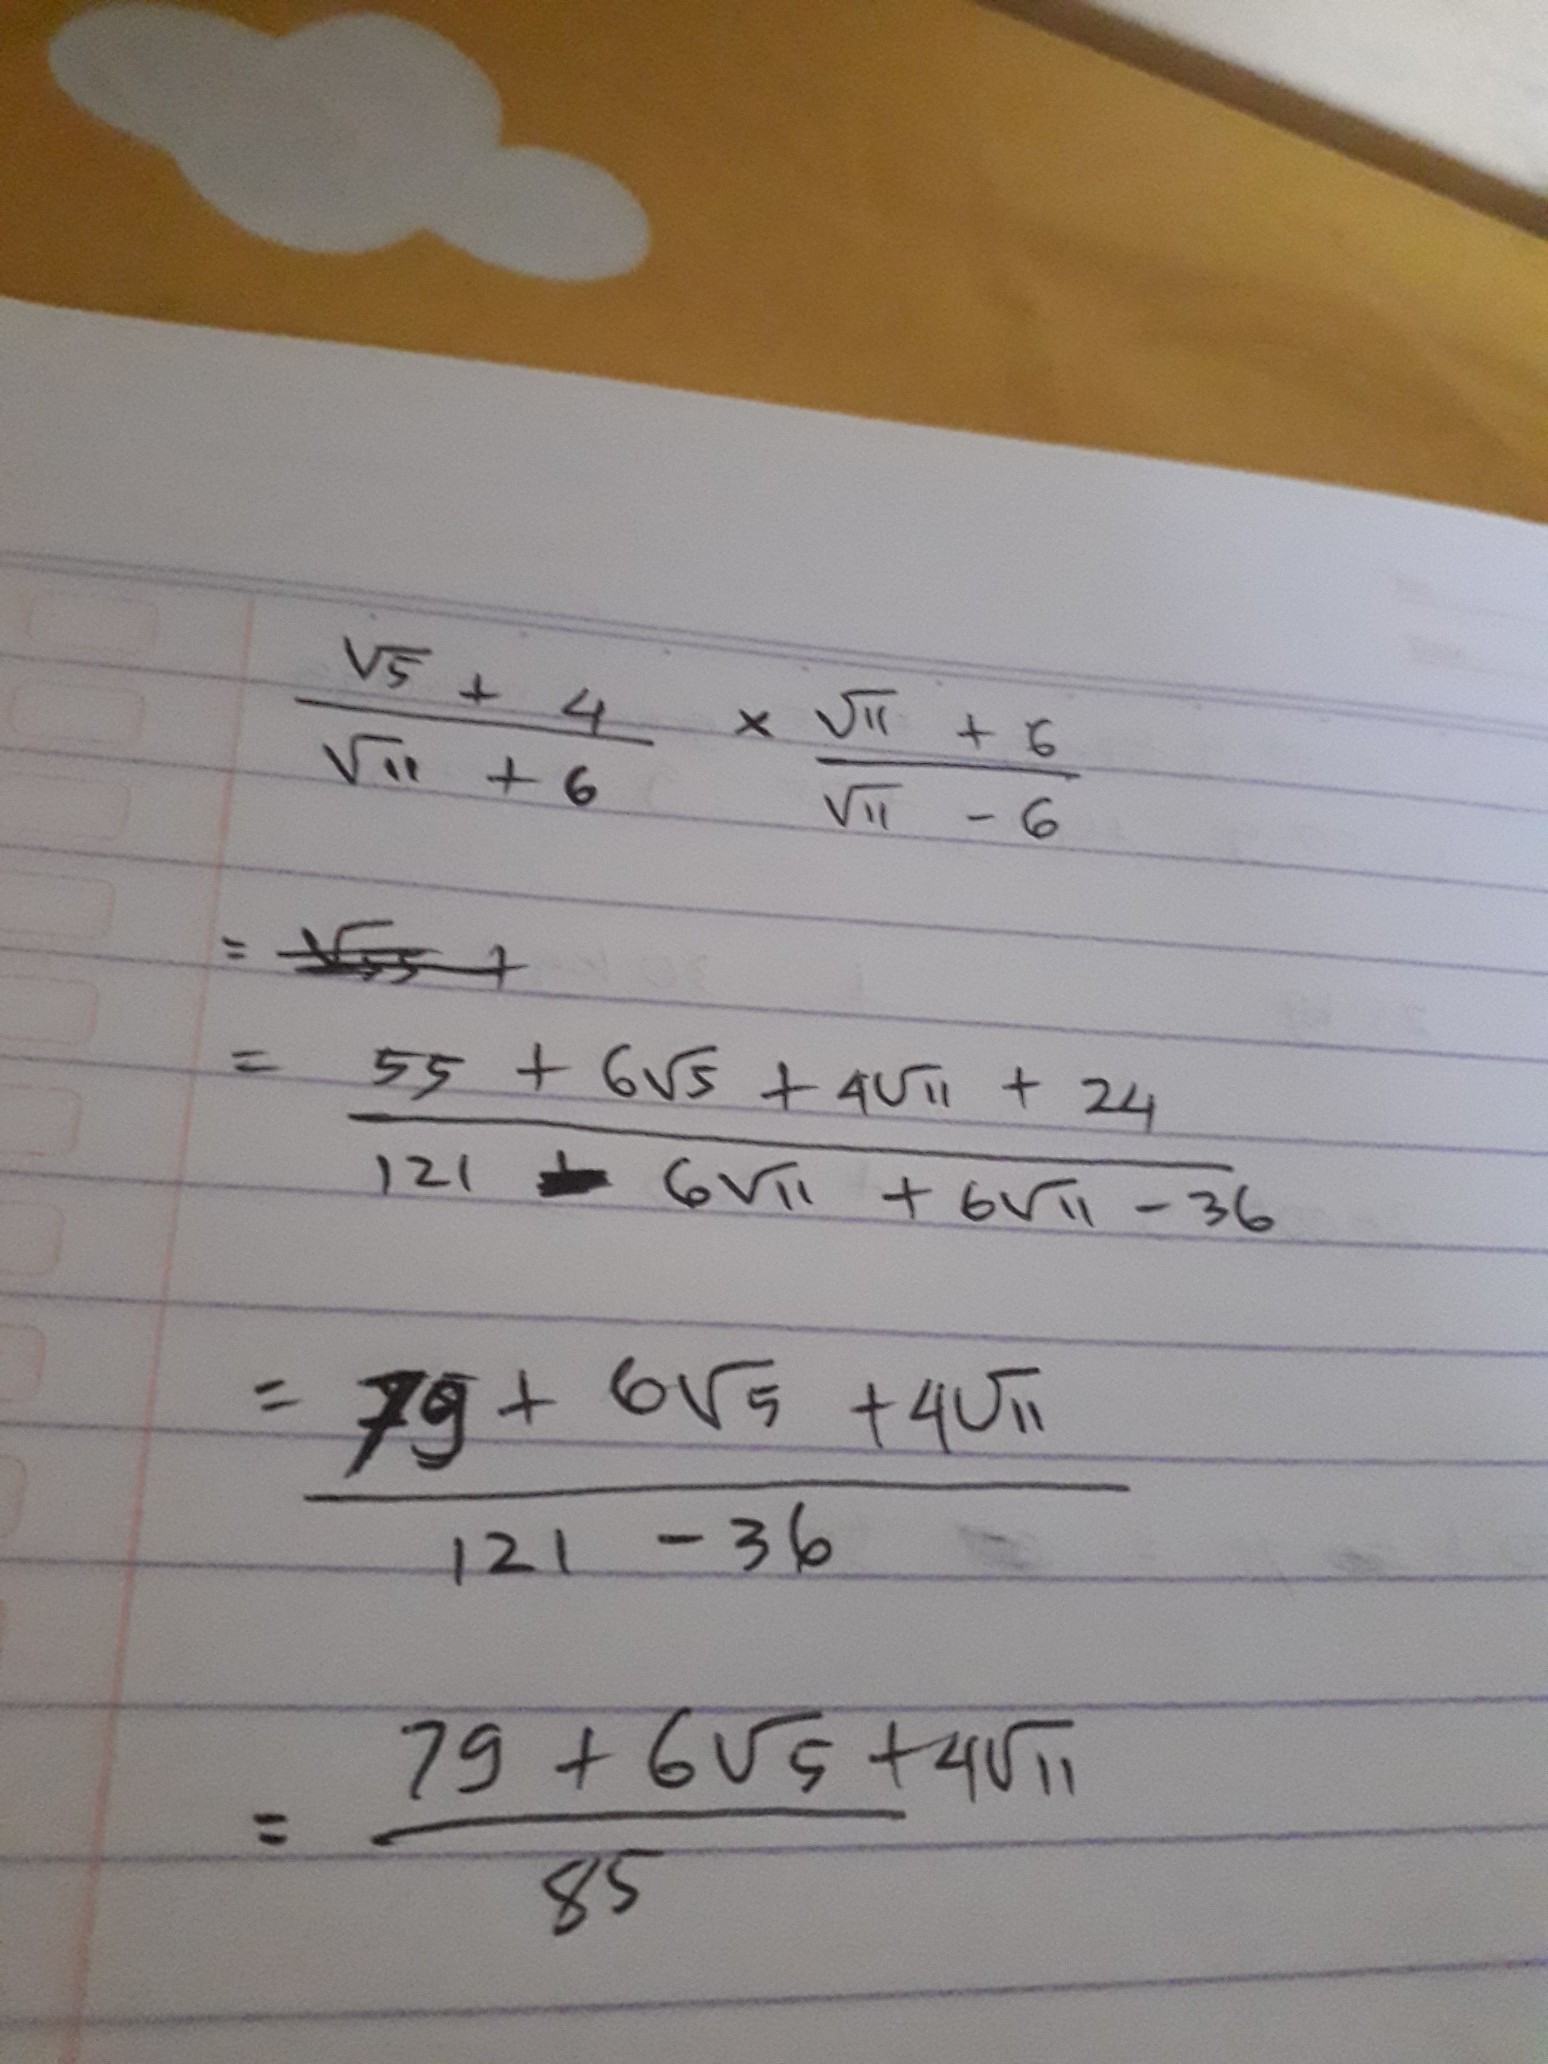 (√5 + 4)/(√11 + 6) × (√11 + 6)/(√11 - 6)
=
= (55 + 6√5 + 4√11 + 24)/(121 - 6√11 + 6√11 - 36)
= (79 + 6√5 + 4√11)/(121 - 36)
= (79 + 6√5 + 4√11)/85